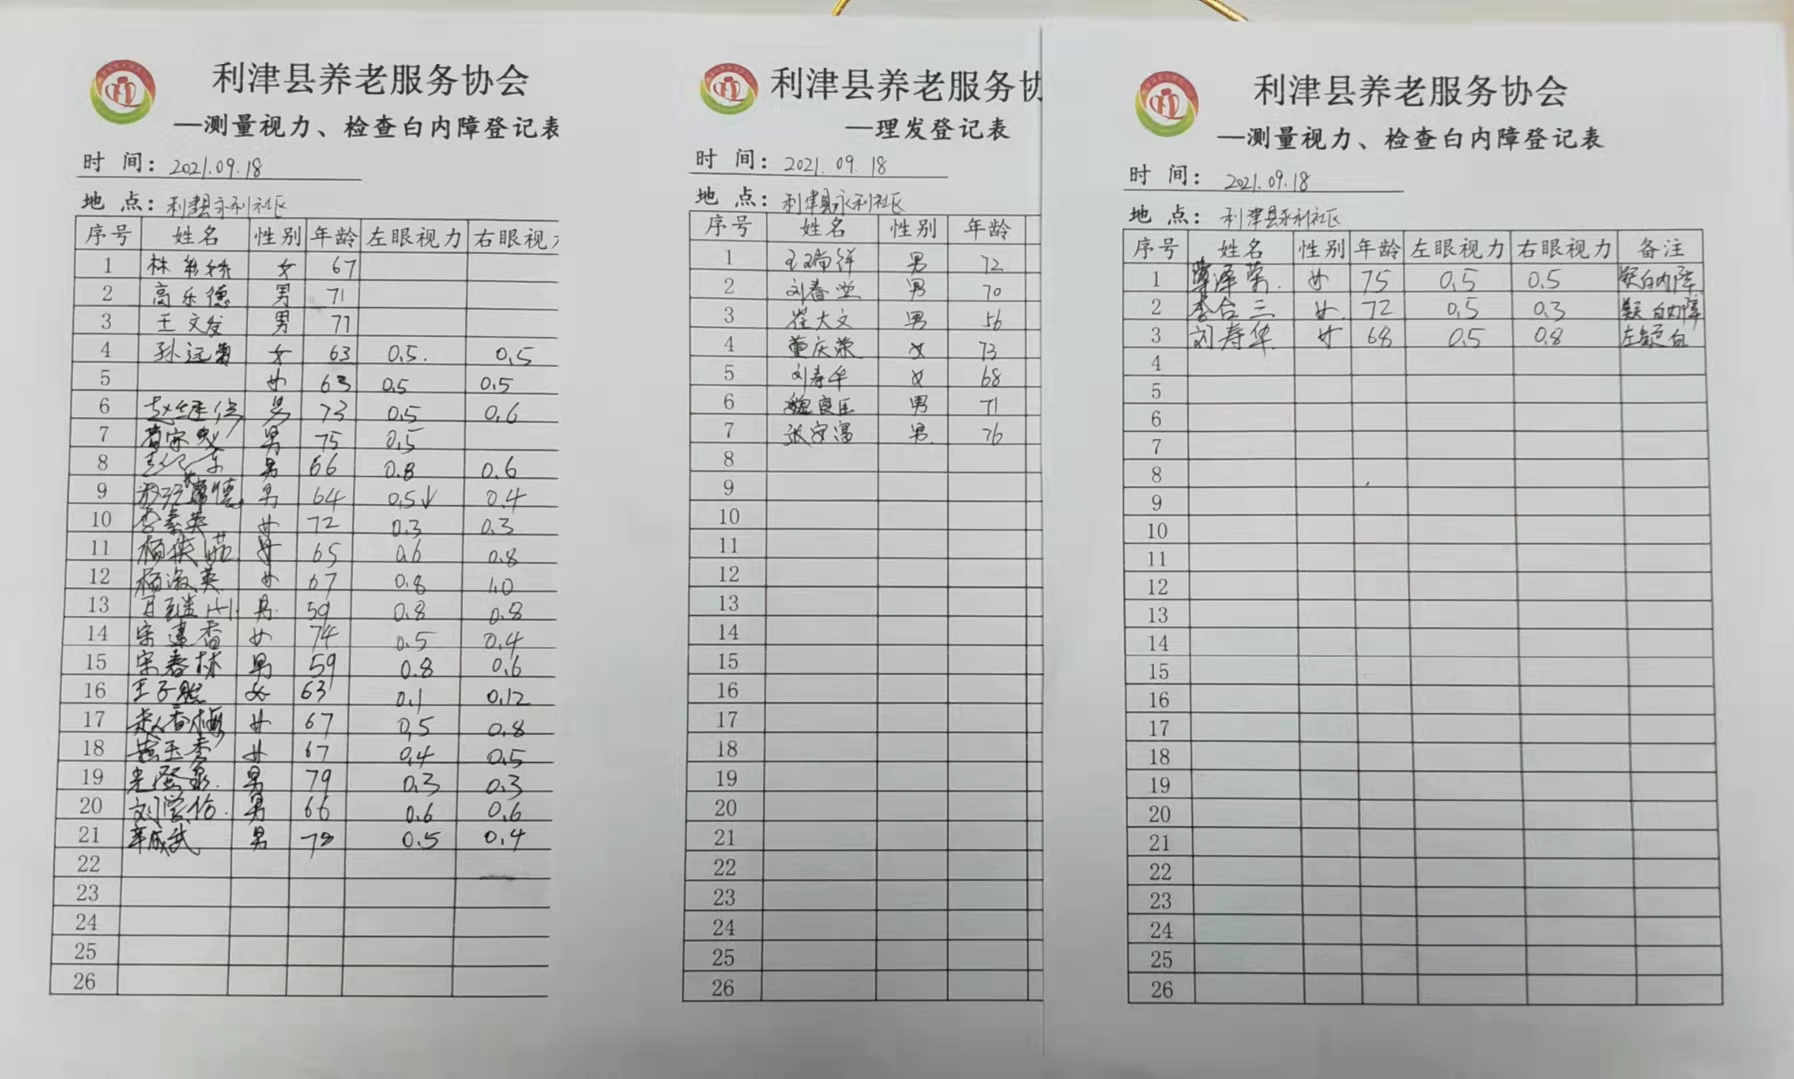 利津县养老服务协会
—测量视力、检查白内障登记表
时 间: 2021.09.18
地 点: 利津县永利社区
序号 姓名 性别 年龄 左眼视力 右眼视力
1 林 女 67
2 高乐德 男 71
3 王文发 男 71
4 孙远 女 63 0.5. 0.5
5 女 63 0.5 0.5
6 男 73 0.5 0.6
7 男 75 0.5
8 男 66 0.8 0.6
9 男 64 0.5 0.4
10 李素英 女 72 0.3 0.3
11 杨 女 65 0.6 0.8
12 杨淑英 女 67 0.8 1.0
13 男 59 0.8 0.8
14 宋建香 女 74 0.5 0.4
15 宋春林 男 59 0.8 0.6
16 王子 女 63 0.1 0.12
17 香梅 女 67 0.5 0.8
18 玉秀 女 67 0.4 0.5
19 男 79 0.3 0.3
20 刘学 男 66 0.6 0.6
21 成武 男 0.5 0.4
22
23
24
25
26
利津县养老服务协
—理发登记表
时 间: 2021.09.18
地 点: 利津县永利社区
序号 姓名 性别 年龄
1 王瑞祥 男 72
2 刘春堂 男 70
3 崔大文 男 56
4 董庆荣 女 73
5 刘寿华 女 68
6 魏良臣 男 71
7 张守富 男 76
8
9
10
11
12
13
14
15
16
17
18
19
20
21
22
23
24
25
26
利津县养老服务协会
—测量视力、检查白内障登记表
时 间: 2021.09.18
地 点: 利津县永利社区
序号 姓名 性别 年龄 左眼视力 右眼视力 备注
1 女 75 0.5 0.5 疑白内障
2 李合三 女 72 0.5 0.3 疑白内障
3 刘寿华 女 68 0.5 0.8 左疑白
4
5
6
7
8
9
10
11
12
13
14
15
16
17
18
19
20
21
22
23
24
25
26